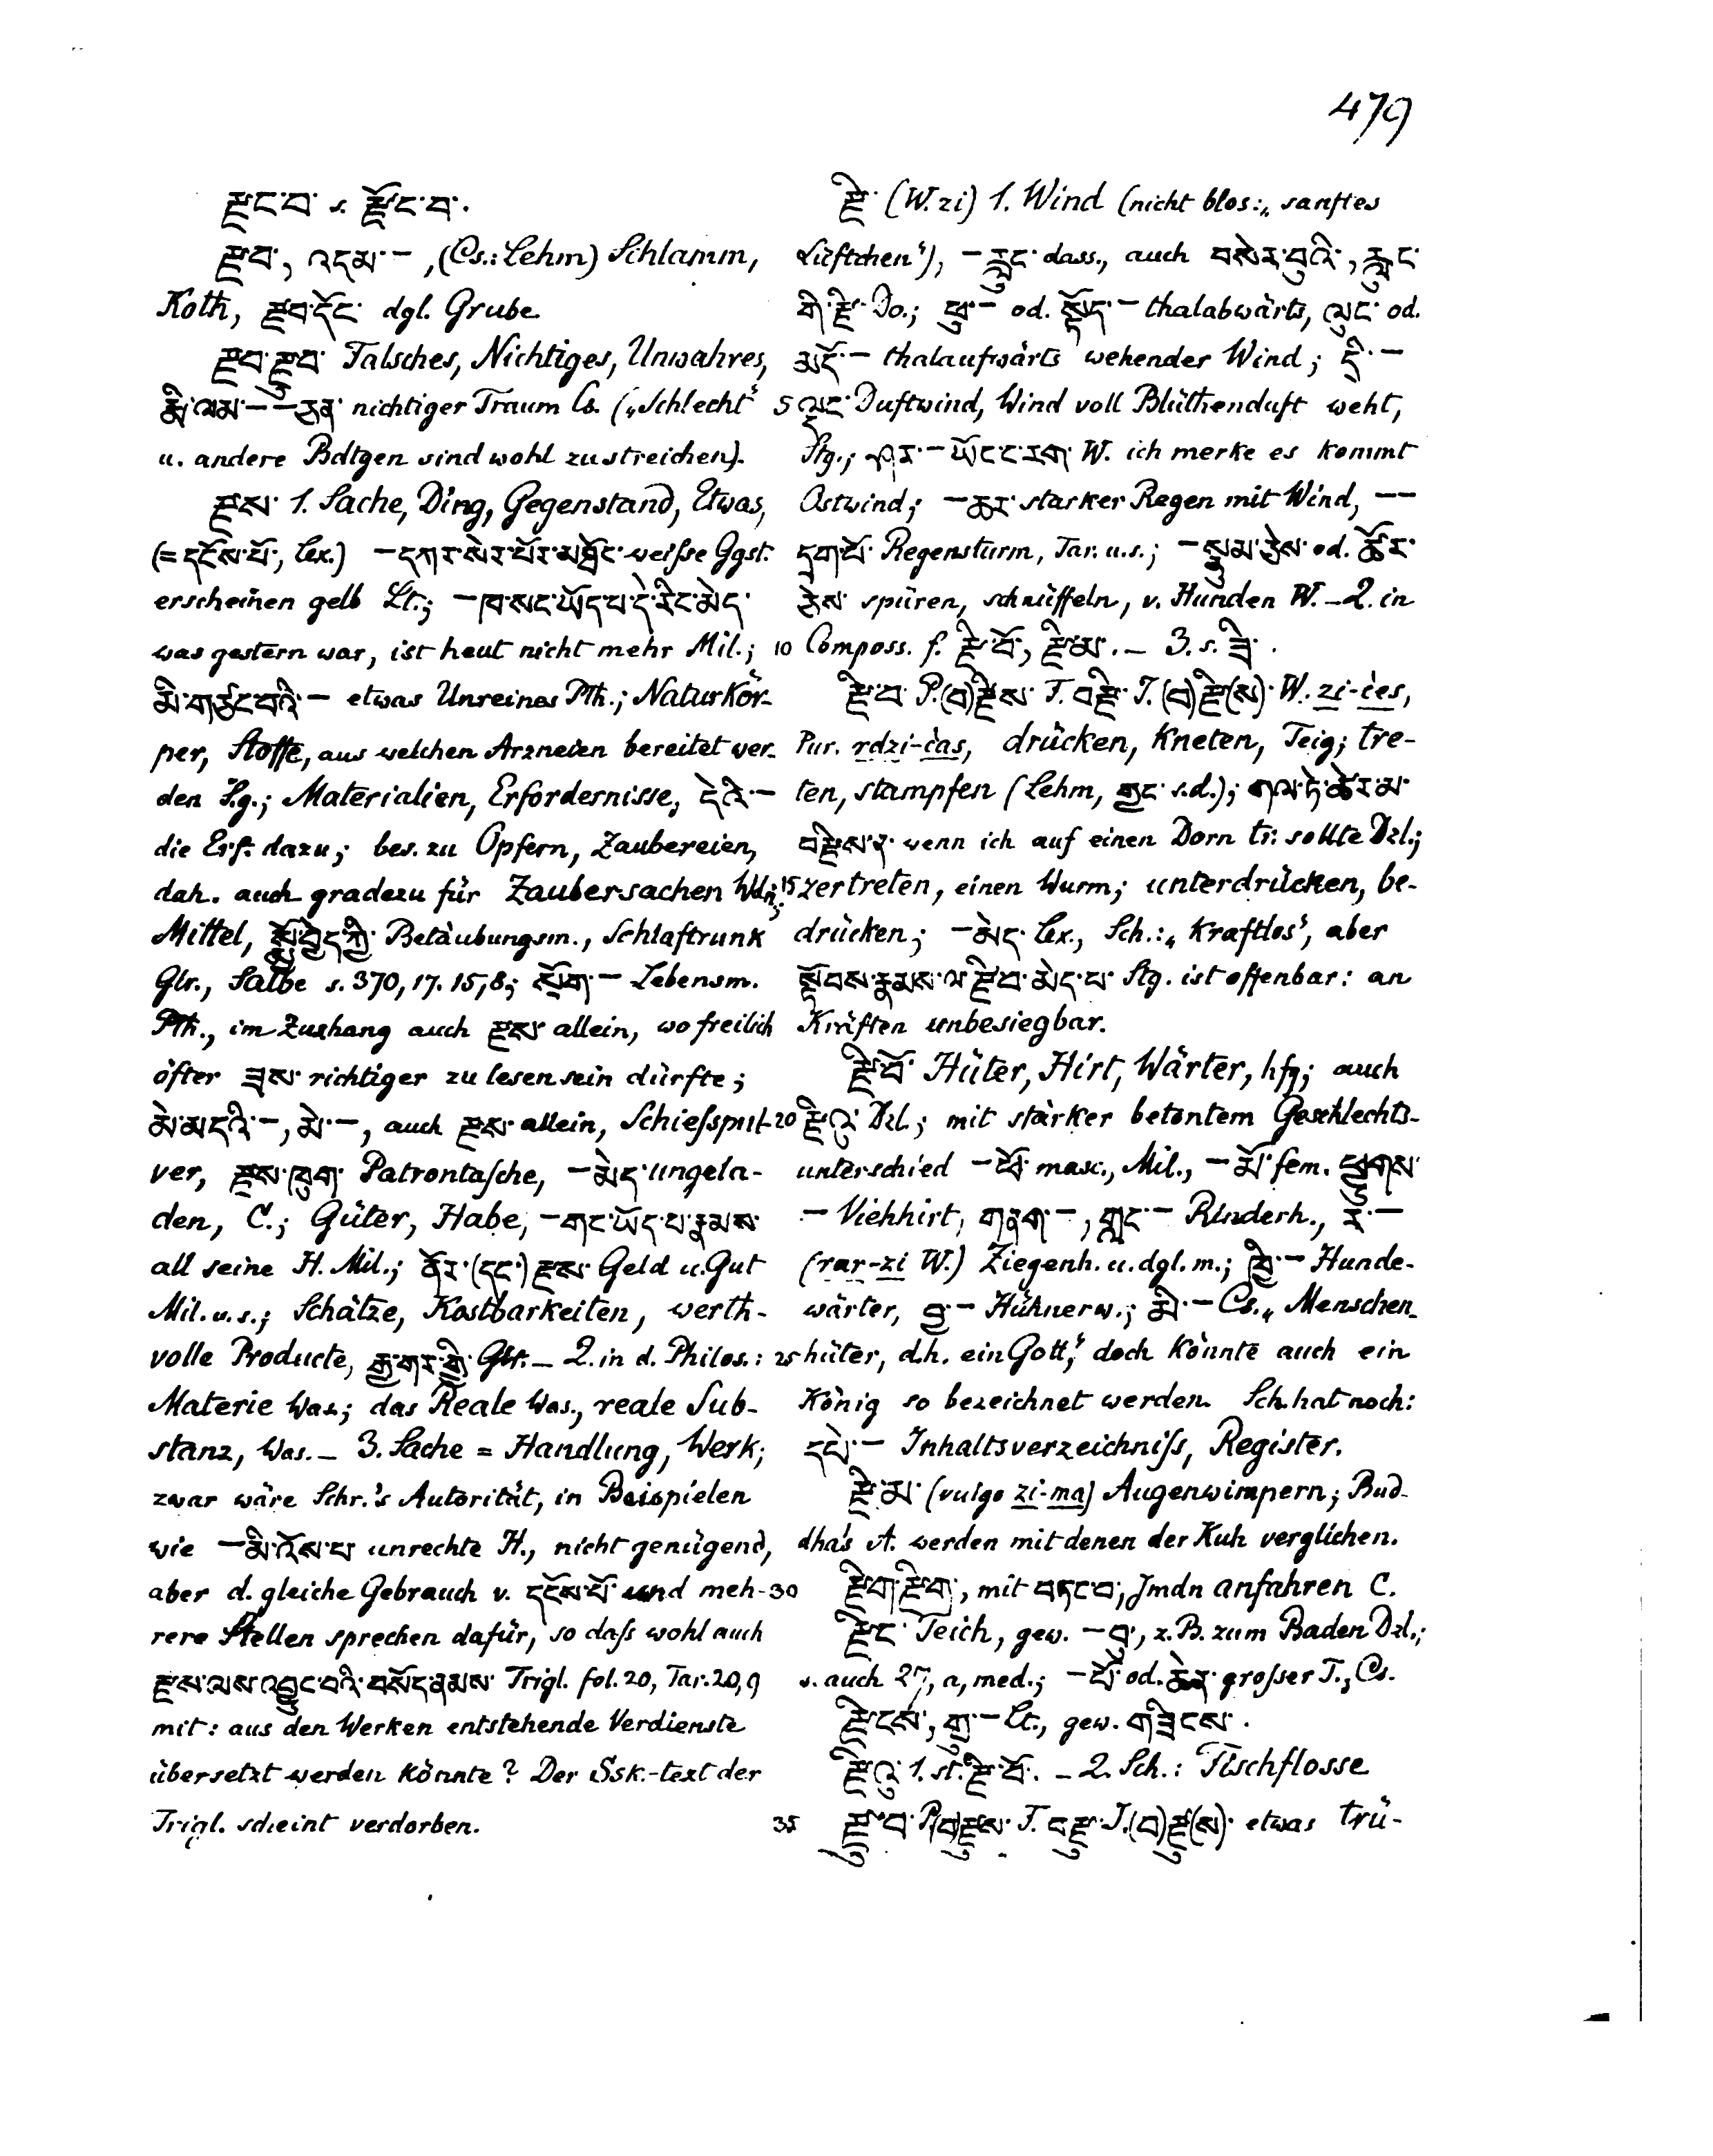 479
རྫང་བ་ s. རྫོང་བ་.
རྫབ་, འདམ་ –, (Cs.: Lehm) Schlamm,
Koth, རྫབ་དོང་ dgl. Grube
རྫབ་རྫུབ་ Falsches, Nichtiges, Unwahres,
རྨི་ལམ་ – – ཅན་ nichtiger Traum Cs. („Schlecht“
u. andere Bdtgen sind wohl zu streichen).
རྫས་ 1. Sache, Ding, Gegenstand, Etwas,
(= དངོས་པོ་, Lex.) – དཀར་སེར་པོར་མཐོང་ weiſse Ggst.
erscheinen gelb Lt.; – ཁ་སང་ཡོད་པ་དེ་རིང་མེད་
was gestern war, ist heut nicht mehr Mil.;
མི་གཙང་བའི་ – etwas Unreines Pth.; Naturkör-
per, Stoffe, aus welchen Arzneien bereitet wer-
den S.g.; Materialien, Erfordernisse, དེའི་ –
die Erf. dazu; bes. zu Opfern, Zaubereien,
dah. auch gradezu für Zaubersachen Wdn;
Mittel, སྨྱོ་བྱེད་ཀྱི་ Betäubungsm., Schlaftrunk
Glr., Salbe s. 370, 17. 15, 8; སྲོག་ – Lebensm.
Pth., im Zushang auch རྫས་ allein, wo freilich
öfter ཟས་ richtiger zu lesen sein dürfte;
མེ་མདའི་ –, མེ་ –, auch རྫས་ allein, Schieſspul-
ver, རྫས་ཁུག་ Patrontaſche, – མེད་ ungela-
den, C.; Güter, Habe, – གང་ཡོད་པ་རྣམས་
all seine H. Mil.; ནོར་(དང་) རྫས་ Geld u. Gut
Mil. u. s.; Schätze, Kostbarkeiten, werth-
volle Producte, རྒྱ་གར་གྱི་ Glr. – 2. in d. Philos.:
Materie Was.; das Reale Was., reale Sub-
stanz, Was. – 3. Sache = Handlung, Werk;
zwar wäre Schr.'s Autorität, in Beispielen
wie – མི་འོས་པ་ unrechte H., nicht genügend,
aber d. gleiche Gebrauch v. དངོས་པོ་ und meh-
rere Stellen sprechen dafür, so daſs wohl auch
རྫས་ལས་འབྱུང་བའི་བསོད་ནམས་ Trigl. fol. 20, Tar. 20, 9
mit: aus den Werken entstehende Verdienste
übersetzt werden könnte? Der Ssk.-text der
Trigl. scheint verdorben.
རྫི་ (W. zi) 1. Wind (nicht blos: „sanftes
Lüftchen“), – རླུང་ dass., auch བསེར་བུའི་, རླུང་
གི་རྫི་ Do.; ཕུ་ – od. སྟོད་ – thalabwärts, ལུང་ od.
མདོ་ – thalaufwärts wehender Wind; དྲི་ –
5 ལྡང་ Duftwind, Wind voll Blüthenduft weht,
Stg.; ཤར་ – ཡོང་ང་རག་ W. ich merke es kommt
Ostwind; – ཆར་ starker Regen mit Wind, – –
དྲག་པོ་ Regensturm, Tar. u.s.; – སྣུམ་ཅེས་ od. ཚོར་
ཅེས་ spüren, schnüffeln, v. Hunden W. – 2. in
10 Composs. f. རྫི་བོ་, རྫི་མ་. – 3. s. ཟི་.
རྫི་བ་ P. (བ)རྫིས་ F. བརྫི་ I. (བ)རྫི(ས)་ W. zi-ces,
Pur. rdzi-cas, drücken, kneten, Teig; tre-
ten, stampfen (Lehm, གྱང་ s.d.); གལ་ཏེ་ཚེར་མ་
བརྫིས་ན་ wenn ich auf einen Dorn tr. sollte Dzl.;
15 zertreten, einen Wurm; unterdrücken, be-
drücken; – མེད་ Lex., Sch.: „kraftlos“, aber
སྟོབས་རྣམས་ལ་རྫི་བ་མེད་པ་ Stg. ist offenbar: an
Kräften unbesiegbar.
རྫི་བོ་ Hüter, Hirt, Wärter, hfg; auch
20 རྫིའུ་ Dzl.; mit stärker betontem Geschlechts-
unterschied – ཕོ་ masc., Mil., – མོ་ fem. ཕྱུགས་
– Viehhirt, གནག་ –, གླང་ – Rinderh., ར་ –
(rar-zi W.) Ziegenh. u. dgl. m.; ཁྱི་ – Hunde-
wärter, བྱ་ – Hühnerw.; མི་ – Cs. „Menschen-
25 hüter, d.h. ein Gott“, doch könnte auch ein
König so bezeichnet werden. Sch. hat noch:
དཔེ་ – Inhaltsverzeichniſs, Register.
རྫི་མ་ (vulgo zi-ma) Augenwimpern; Bud-
dha's A. werden mit denen der Kuh verglichen.
30 རྫིག་རྫིག་, mit བདང་བ་, Jmdn anfahren C.
རྫིང་ Teich, gew. – བུ་, z. B. zum Baden Dzl.;
s. auch 27, a, med.; – པོ་ od. ཆེན་ groſser T., Cs.
རྫིངས་, གྲུ་ – Lt., gew. གཟིངས་.
རྫིའུ་ 1. st. རྫི་བོ་. – 2. Sch.: Fischflosse
35 རྫུ་བ་ P. (བ)རྫུས་ F. བརྫུ་ I. (བ)རྫུ(ས)་ etwas trü-